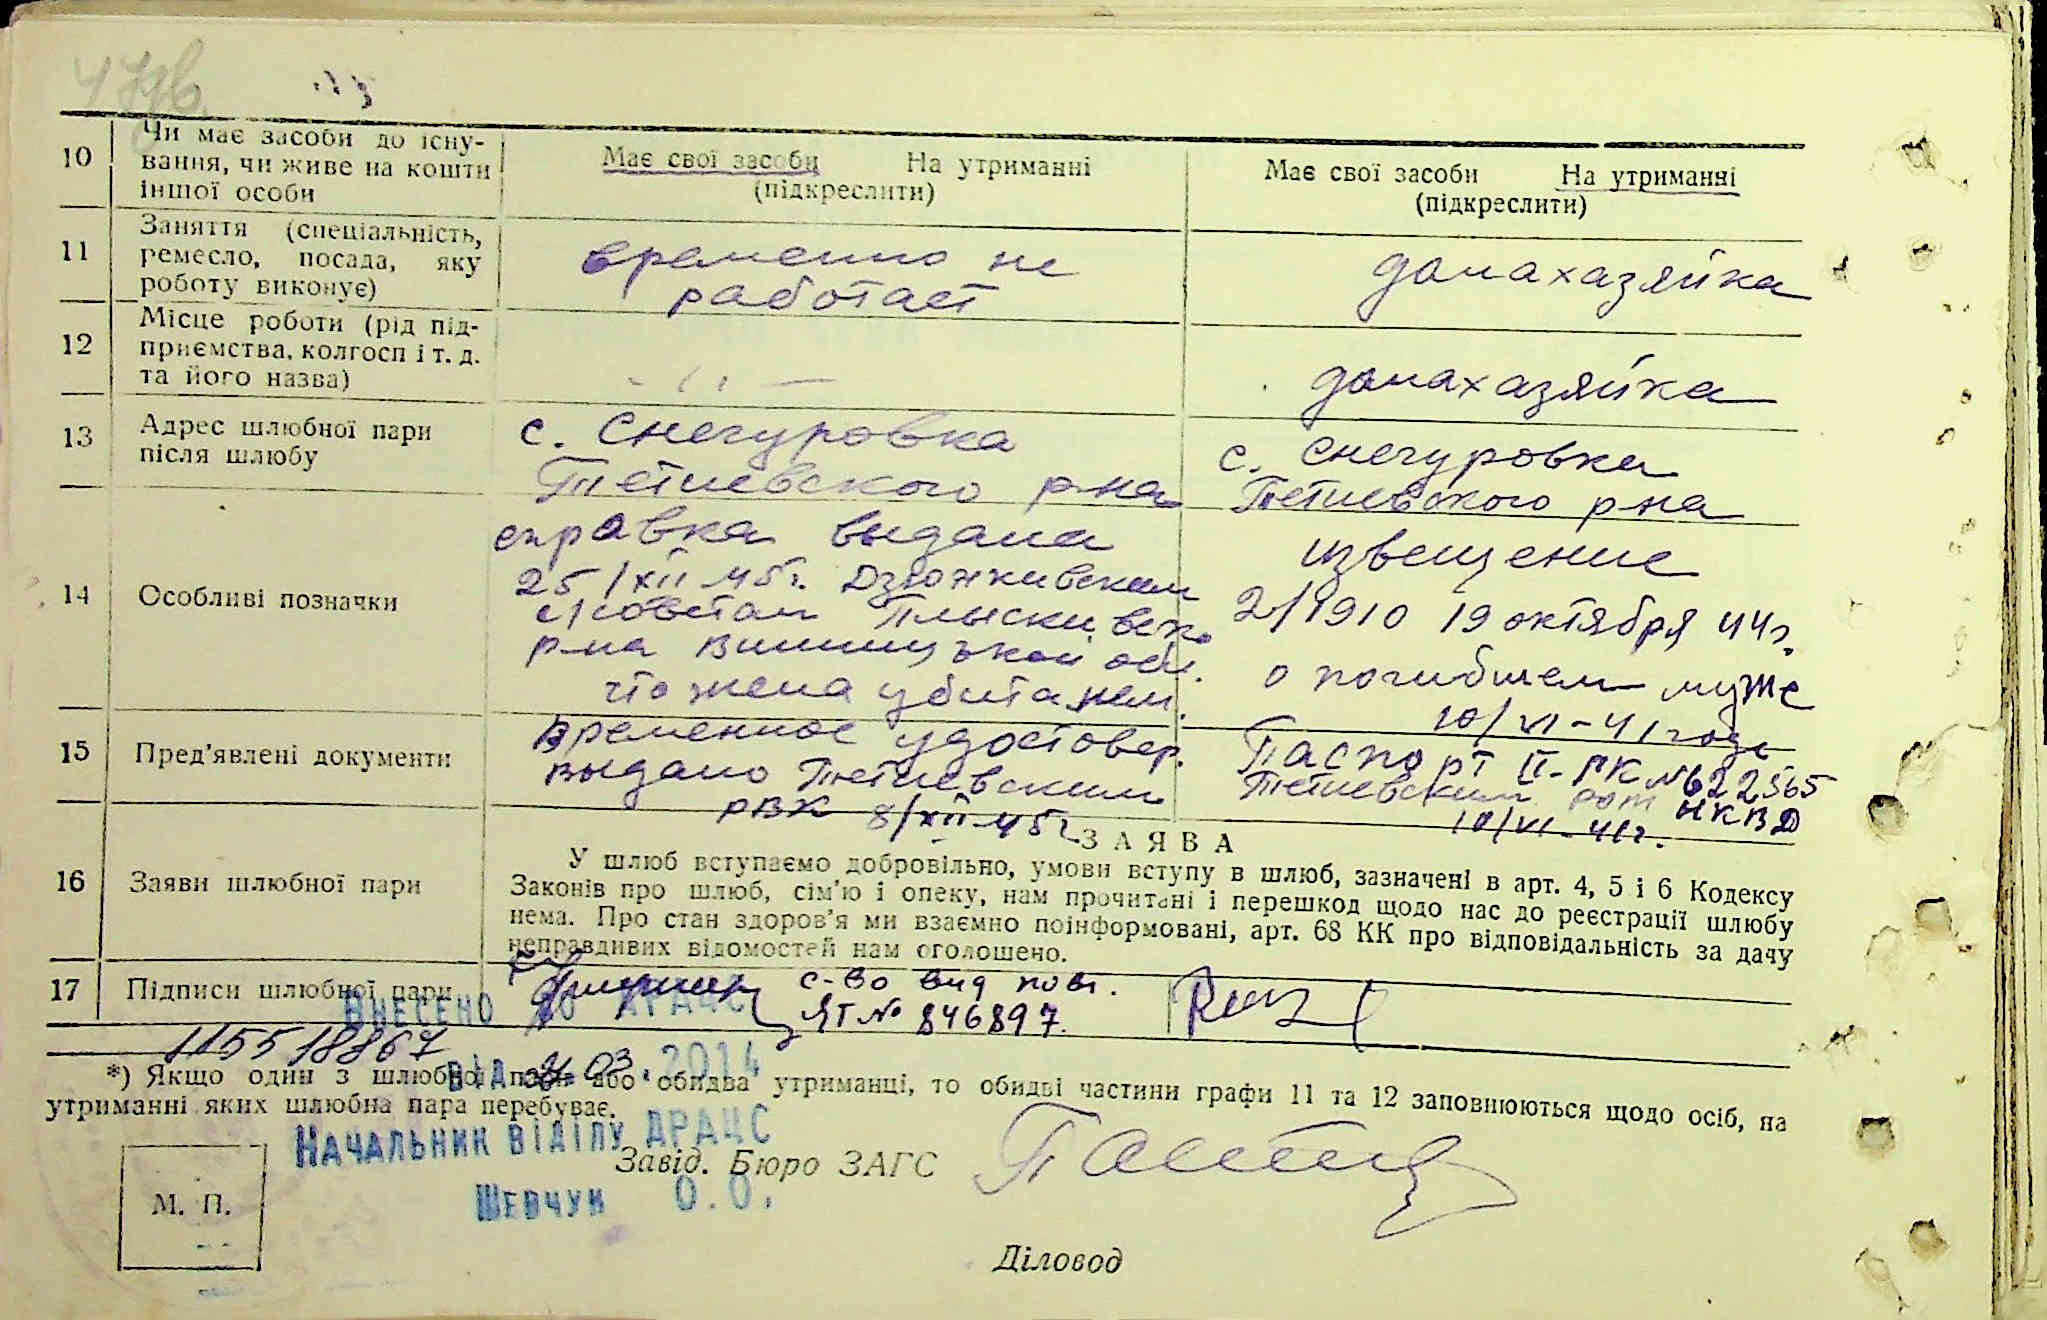 10
Чи має засоби до існу-
вання, чи живе на кошти
іншої особи
Має свої засоби На утриманні
(підкреслити)
Має свої засоби На утриманні
(підкреслити)
11
Заняття (спеціальність,
ремесло, посада, яку
роботу виконує)
временно не
работает
домахазяйка
12
Місце роботи (рід під-
приємства, колгосп і т. д.
та його назва)
домахазяйка
13
Адрес шлюбної пари
після шлюбу
с. Снегуровка
Тетиевского р-на
с. Снегуровка
Тетиевского р-на
14
Особливі позначки
справка выдана
25/XII 45г. Дзюнкивским
с/советом Плыскивск.
р-на Винницькой обл.
что жена убита нем.
извещение
2/1910 19 октября 44г.
о погибшем муже
10/VI-41 года
15
Пред'явлені документи
временное удостовер.
выдано Тетиевским
РВК 8/XII-45г.
Паспорт II-РК №622565
Тетиевским ром НКВД
10/VI-41г.
16
Заяви шлюбної пари
ЗАЯВА
У шлюб вступаємо добровільно, умови вступу в шлюб, зазначені в арт. 4, 5 і 6 Кодексу
Законів про шлюб, сім'ю і опеку, нам прочитані і перешкод щодо нас до реєстрації шлюбу
нема. Про стан здоров'я ми взаємно поінформовані, арт. 68 КК про відповідальність за дачу
неправдивих відомостей нам оголошено.
17
Підписи шлюбної пари
с-во вид повт.
ЯТ № 846897.
Внесено до ДРАЦС
1155 18867
від 03.2014
*) Якщо один з шлюбної пари або обидва утриманці, то обидві частини графи 11 та 12 заповнюються щодо осіб, на
утриманні яких шлюбна пара перебуває.
Начальник відділу ДРАЦС
Завід. Бюро ЗАГС
Шевчук О.О.
М. П.
Діловод